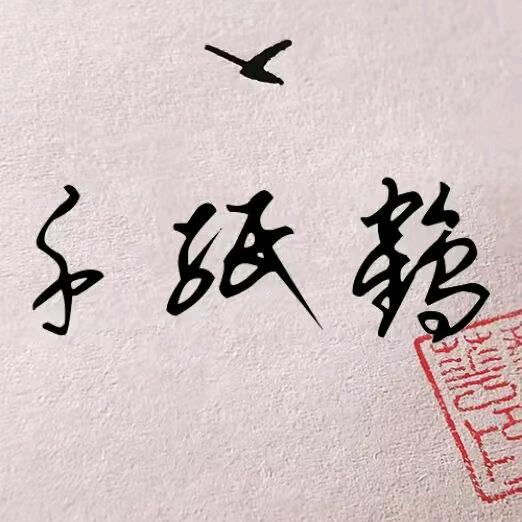 千纸鹤